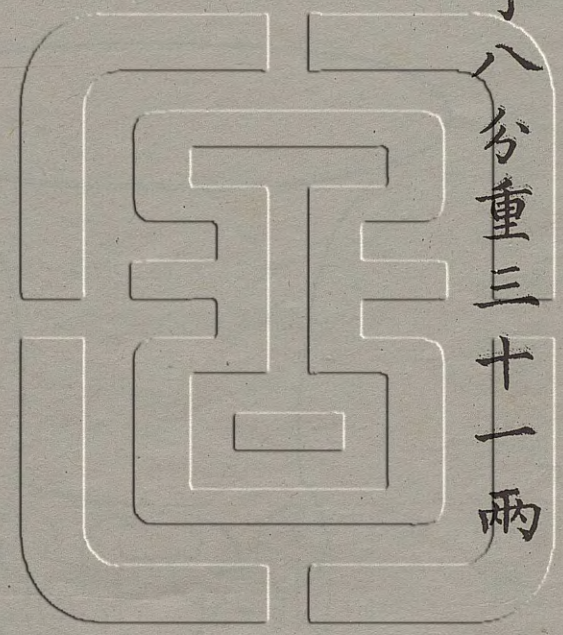 八分重三十一兩